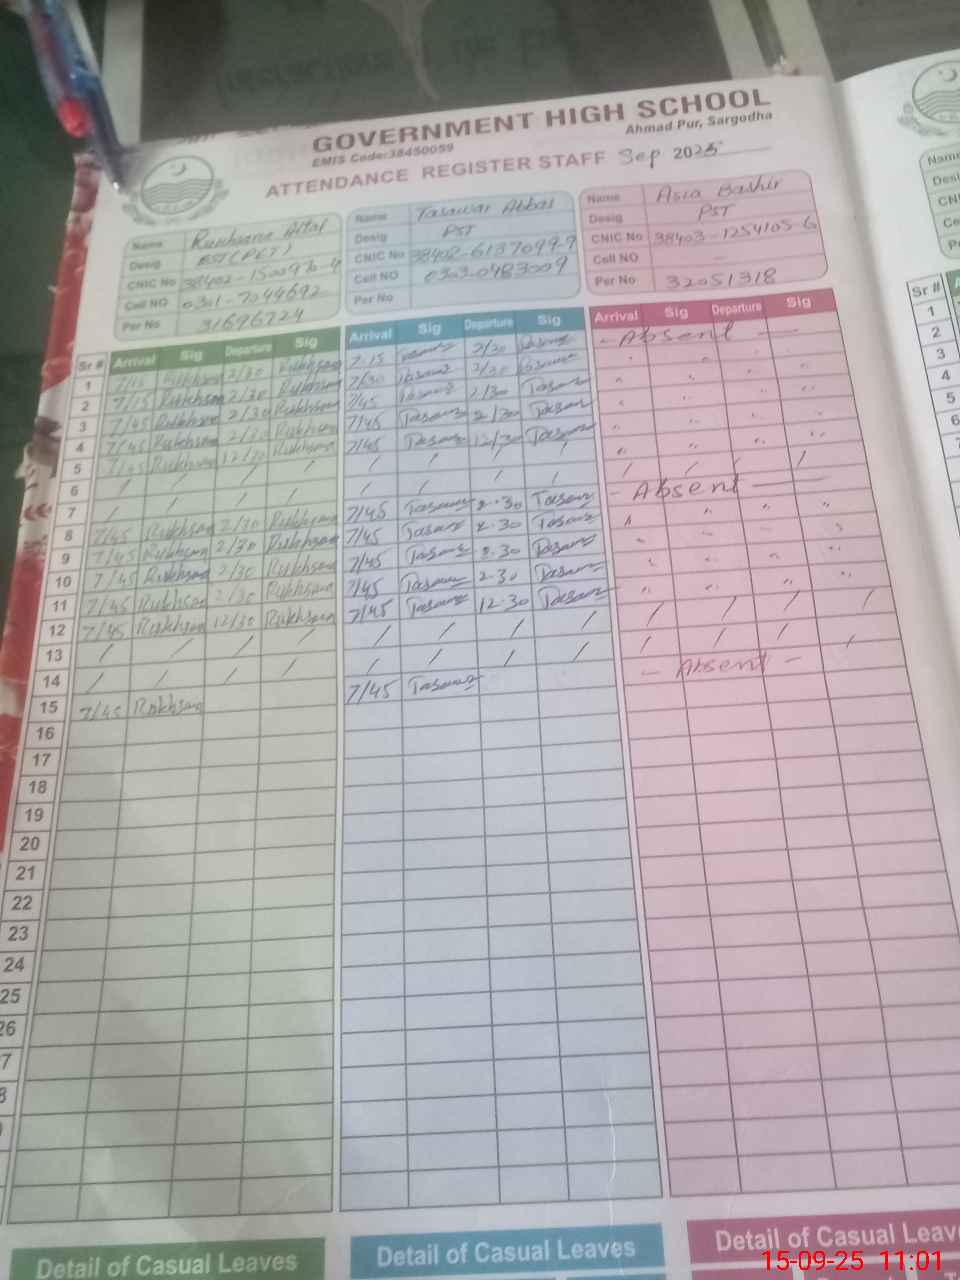 GOVERNMENT HIGH SCHOOL
Ahmad Pur, Sargodha
EMIS Code:38450059
ATTENDANCE REGISTER STAFF Sep 2025
Name
Desig EST (PET)
CNIC No 38402-1500970-4
Cell NO 0301-7044692
Per No 31696724
Name Tasawar Abbas
Desig PST
CNIC No 38402-6137099-7
Cell NO 0303-0483009
Per No
Name Asia Bashir
Desig PST
CNIC No 38403-1254105-6
Cell NO -
Per No 32051318
Sr # Arrival Sig Departure Sig Arrival Sig Departure Sig Arrival Sig Departure Sig
1 7/15 2/30 7:15 2/30 - Absent -
2 7/15 Rukhsana 2/30 Rukhsana 7/30 2/30 " " " "
3 7/45 Rukhsana 2/30 Rukhsana 7/45 " " " "
4 7/45 Rukhsana 2/30 Rukhsana 7/45 2/30 " " " "
5 7/45 Rukhsana 12/30 Rukhsana 7/45 12/30 " " " "
6 / / / / / / / / / / / /
7 / / / / / / / / - Absent -
8 7/45 Rukhsana 2/30 Rukhsana 7/45 2.30 " " "
9 7/45 Rukhsana 2/30 Rukhsana 7/45 2.30 " " " "
10 7/45 Rukhsana 2/30 Rukhsana 7/45 2.30 " " " "
11 7/45 Rukhsana 2/30 Rukhsana 7/45 2.30 " " " "
12 7/45 Rukhsana 12/30 Rukhsana 7/45 12.30 / / / /
13 / / / / / / / / / / / /
14 / / / / / / / / - Absent -
15 7/45 Rukhsana 7/45
16
17
18
19
20
21
22
23
24
25
26
Detail of Casual Leaves
Detail of Casual Leaves
Detail of Casual
Sr #
1
2
3
4
5
6
7
15-09-25 11:01